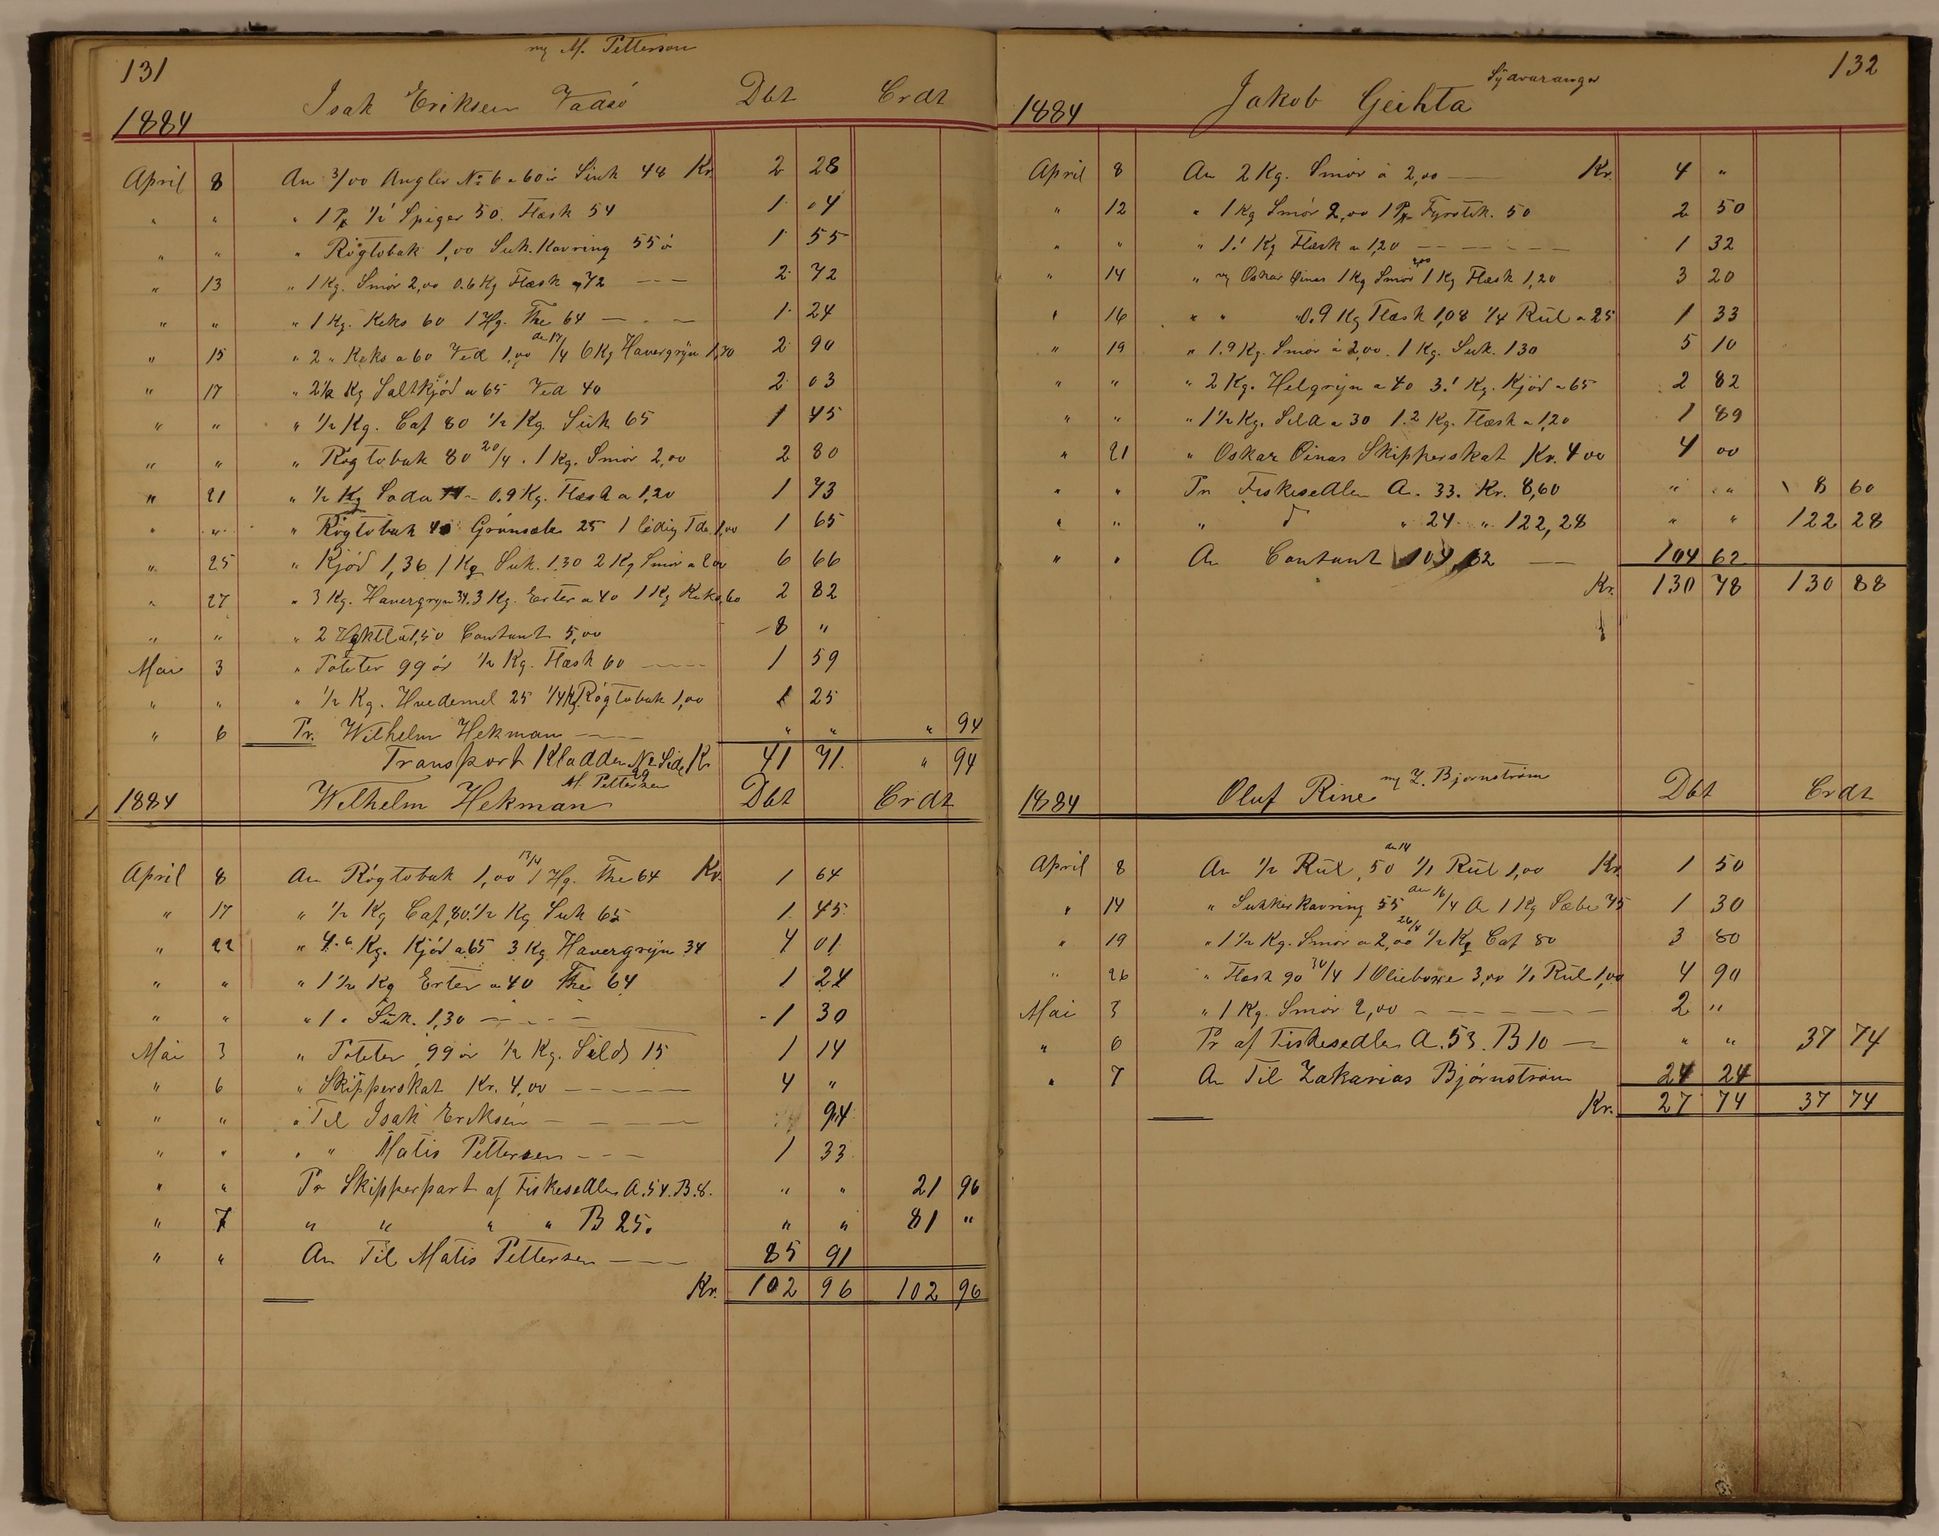 131
M. Petterson
1884 Isak Eriksen Vadsö Dbt Crdt
April 8 An 3/00 Angler No 6 a 60 ör Suk 48 Kr. 2 28
" " " 1 Pk 1 1/2" Spiger 50. Flæsk 54 1 04
" " " Rögtobak 1,00 Suk. Kavring 55 ö 1 55
" 13 " 1 Kg. Smör 2,00 0.6 Kg Flæsk a 72 — 2 72
" " " 1 Kg. Keks 60 1 Hg. The 64 — 1 24
" 15 " 2 " Keks a 60 Ved 1,00 An 17/4 6 Kg Havergryn 1,70 2 90
" 17 " 2 1/2 Kg Saltkjöd a 65 Ved 40 2 03
" " " 1/2 Kg. Caf 80 1/2 Kg. Suk 65 1 45
" " " Rögtobak 80 20/4 1 Kg. Smör 2,00 2 80
" 21 " 1/2 Kg Soda — 0.9 Kg. Flæsk a 1,20 1 73
" " " Rögtobak 40 Grönsæbe 25 1 ledig Tde 1,00 1 65
" 25 " Kjöd 1,36 1 Kg Suk. 1.30 2 Kg Smör a 2,00 6 66
" 27 " 3 Kg. Havergryn 34. 3 Kg. Erter a 40 1 Kg Keks, 60 2 82
" " " 2 a 1,50 Contant 5,00 8 "
Mai 3 " Poteter 99 ör 1/2 Kg. Flæsk 60 — 1 59
" " " 1/2 Kg. Hvedemel 25 1/4 Kg. Rögtobak 1,00 1 25
" 6 Pr. Wilhelm Hekman — " " " 94
Transport Kladden No Side 29 Kr 41 71 " 94
1884 Wilhelm Hekman M. Pettersen Dbt Crdt
April 8 An Rögtobak 1,00 17/4 1 Hg. The 64 Kr. 1 64
" 17 " 1/2 Kg Caf, 80. 1/2 Kg Suk 65 1 45
" 22 " 4.6 Kg. Kjöd a 65 3 Kg Havergryn 34 4 01
" " " 1 1/2 Kg Erter a 40 The 64 1 24
" " " 1 " Suk. 1,30 — 1 30
Mai 3 " Poteter 99 ör 1/2 Kg. Sild 15 1 14
" 6 " Skipperskat Kr. 4,00 — 4 "
" " " Til Isak Eriksen — 94
" " " " Matis Pettersen — 1 33
" " Pr Skipperpart af Fiskesedler A. 54. B. 8. " " 21 96
" 7 " " " " B 25. " " 81 "
" " An Til Matis Pettersen — 85 91
Kr. 102 96 102 96
132
1884 Jakob Geihta Sydvaranger
April 8 An 2 Kg. Smör a 2,00 — Kr. 4 "
" 12 " 1 Kg Smör 2,00 1 Pk Fyrstik. 50 2 50
" " " 1.1 Kg Flæsk a 1,20 — 1 32
" 14 " Oskar Einar 1 Kg Smör 2,00 1 Kg Flæsk 1,20 3 20
" 16 " " 0.9 Kg Flæsk 1,08 1/4 Rül a 25 1 33
" 19 " 1.9 Kg. Smör a 2,00. 1 Kg. Suk. 130 5 10
" " " 2 Kg. Helgryn a 40 3.1 Kg. Kjöd a 65 2 82
" " " 1 1/2 Kg. Sild a 30 1.2 Kg. Flæsk a 1,20 1 89
" 21 " Oskar Einar Skipperskat Kr. 4 00 4 00
" " Pr Fiskesedler A. 33. Kr. 8,60 " " 8 60
" " " d " 24 " 122,28 " " 122 28
" " An Contant 104,62 — 104 62
Kr. 130 78 130 88
1884 Oluf Rine Z. Bjornström Dbt Crdt
April 8 An 1/2 Rül, 50 An 14 1/1 Rül 1,00 Kr. 1 50
" 14 " Sukkerkavring 55 An 16/4 An 1 Kg Sæbe 75 1 30
" 19 " 1 1/2 Kg. Smör a 2,00 26/4 1/2 Kg Caf 80 3 80
" 26 " Flæsk 90 30/4 1 Oliebuxe 3,00 1/1 Rül 1,00 4 90
Mai 3 " 1 Kg. Smör 2,00 — 2 "
" 6 Pr af Fiskesedler A. 53. B 10 — " " 37 74
" 7 An Til Zakarias Bjørnström 24 24
Kr. 27 74 37 74